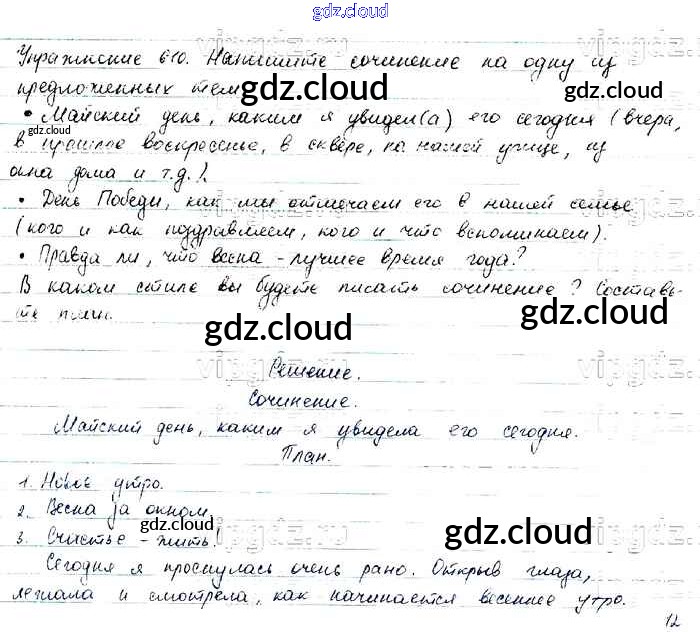 gdz.cloud
Упражнение 610. Напишите сочинение на одну из
предложенных тем
• Майский день, каким я увидел(а) его сегодня (вчера,
в прошлое воскресенье, в сквере, на нашей улице, из
окна дома и т.д.).
• День Победы, как мы отмечаем его в нашей семье
(кого и как поздравляем, кого и что вспоминаем).
• Правда ли, что весна - лучшее время года?
В каком стиле вы будете писать сочинение? Составь-
те план.
gdz.cloud
Решение.
Сочинение.
Майский день, каким я увидела его сегодня.
План.
1. Новое утро.
2. Весна за окном.
3. Счастье - жить!
Сегодня я проснулась очень рано. Открыв глаза,
лежала и смотрела, как начинается весеннее утро.
12